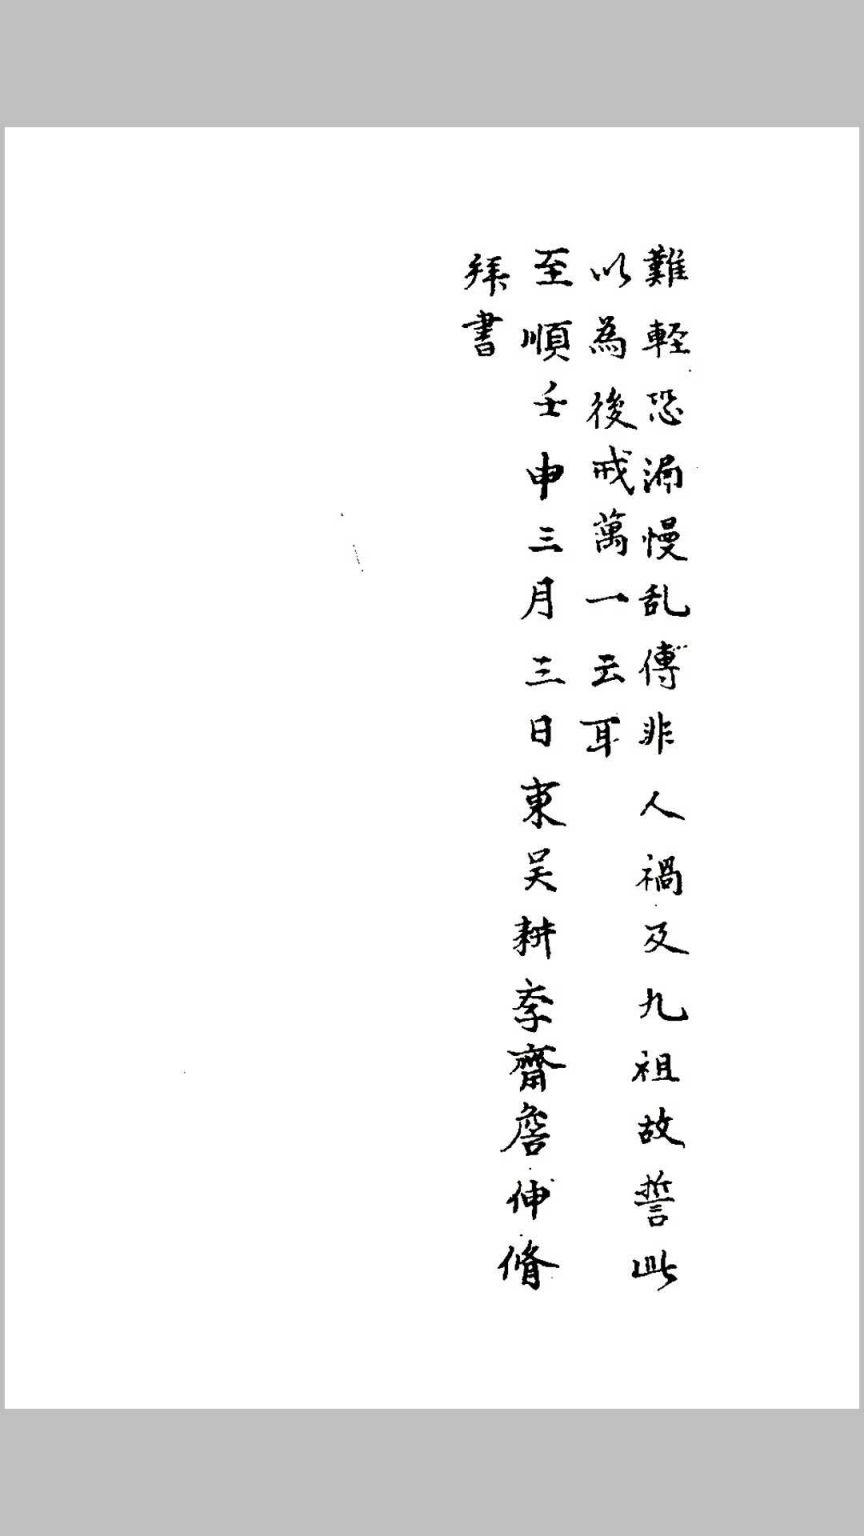 難輕恐漏慢乱傳非人禍及九祖故誓此
以為後戒萬一云耳
至順壬申三月三日東吴耕孝齋詹仲脩
拜書